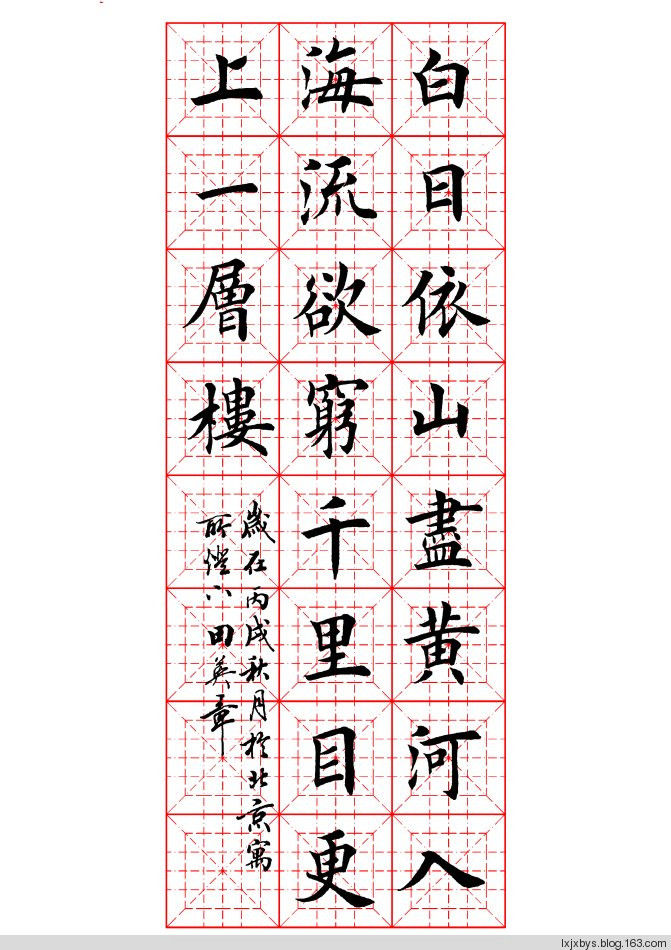 白日依山盡黄河入
海流欲窮千里目更
上一層樓
歲在丙戌秋月於北京寓
所燈下田英章
lxjxbys.blog.163.com